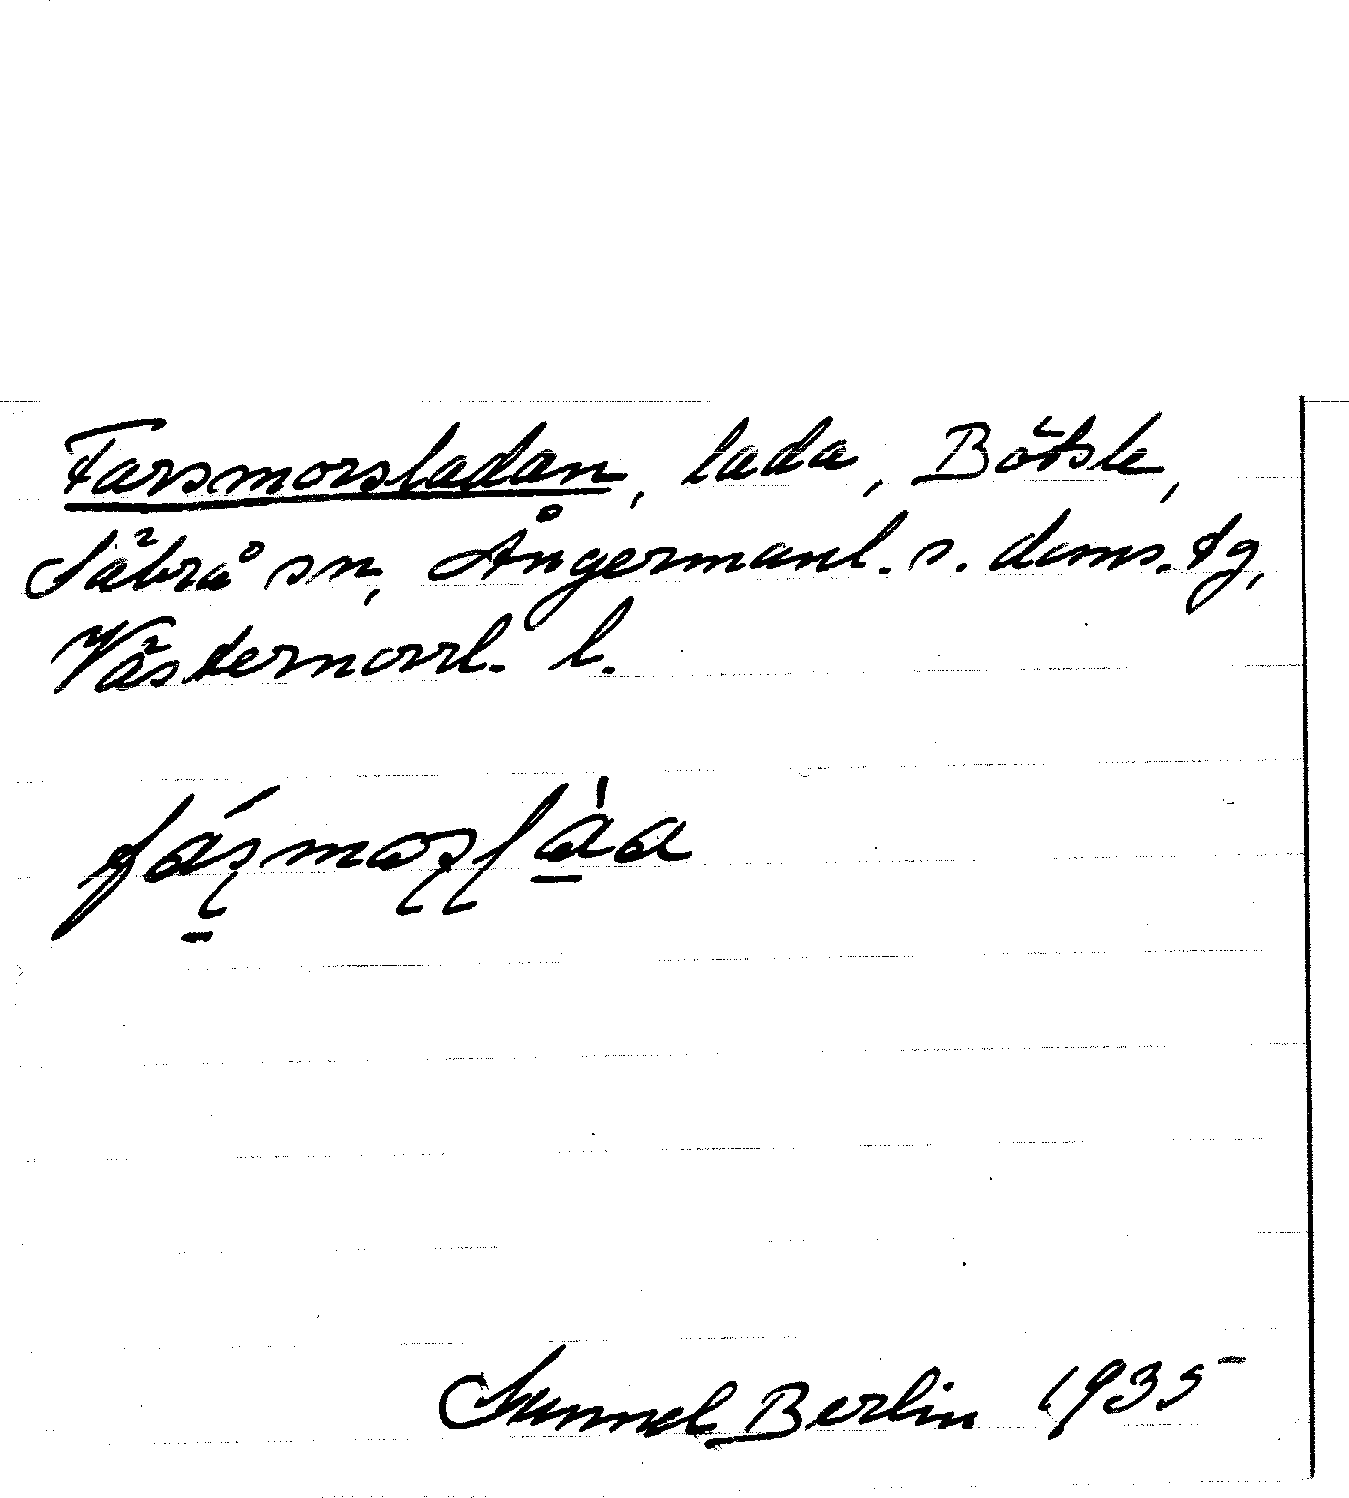 Farsmorsladan, lada, Bölsle,
Säbrå sn, Ångermanl. s. doms. tg,
Västernorrl. l.
Gunnel Berlin 1935